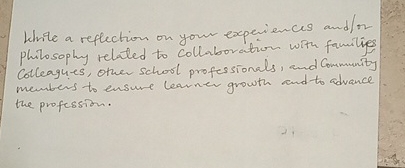 Write a reflection on your experiences and/or
Philosophy related to collaboration with families
Colleagues, other school professionals, and Community
members to ensure learner growth and to advance
the profession.